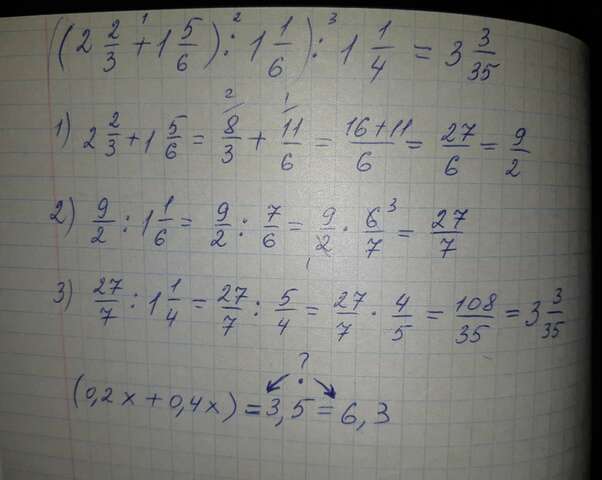 ((2 2/3 + 1 5/6) : 1 1/6) : 1 1/4 = 3 3/35
1) 2 2/3 + 1 5/6 = 8/3 + 11/6 = 16+11/6 = 27/6 = 9/2
2) 9/2 : 1 1/6 = 9/2 : 7/6 = 9/2 · 6/7 = 27/7
3) 27/7 : 1 1/4 = 27/7 : 5/4 = 27/7 · 4/5 = 108/35 = 3 3/35
?
(0,2x + 0,4x) = · 3,5 = 6,3